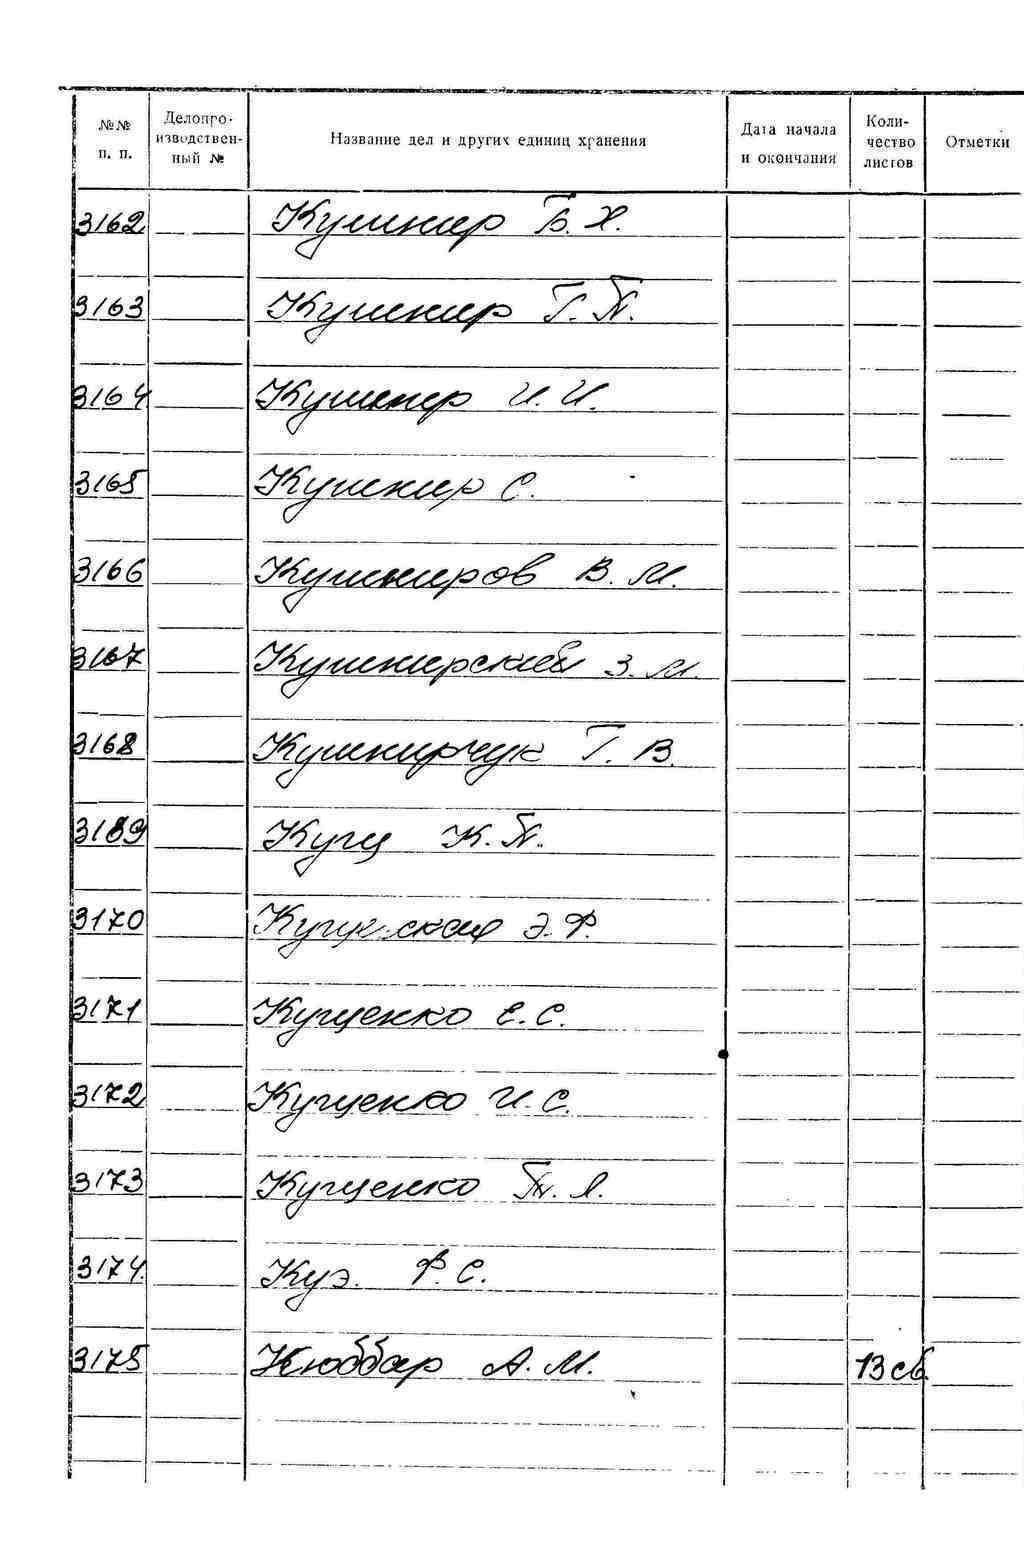 №№ п. п. Делопроизводственный № Название дел и других единиц хранения Дата начала и окончания Количество листов Отметки
3162 Кушнир Б. Х.
3163 Кушнир Г. П.
3164 Кушнир И. И.
3165 Кушнир С.
3166 Кушниров В. М.
3167 Кушнирский З. М.
3168 Кушнирчук Г. В.
3169 Кущ К. П.
3170 Э. Ф.
3171 Кущенко Е. С.
3172 Кущенко И. С.
3173 Кущенко П. Я.
3174 Куэ. Ф. С.
3175 Кюббар А. М. 13 св.